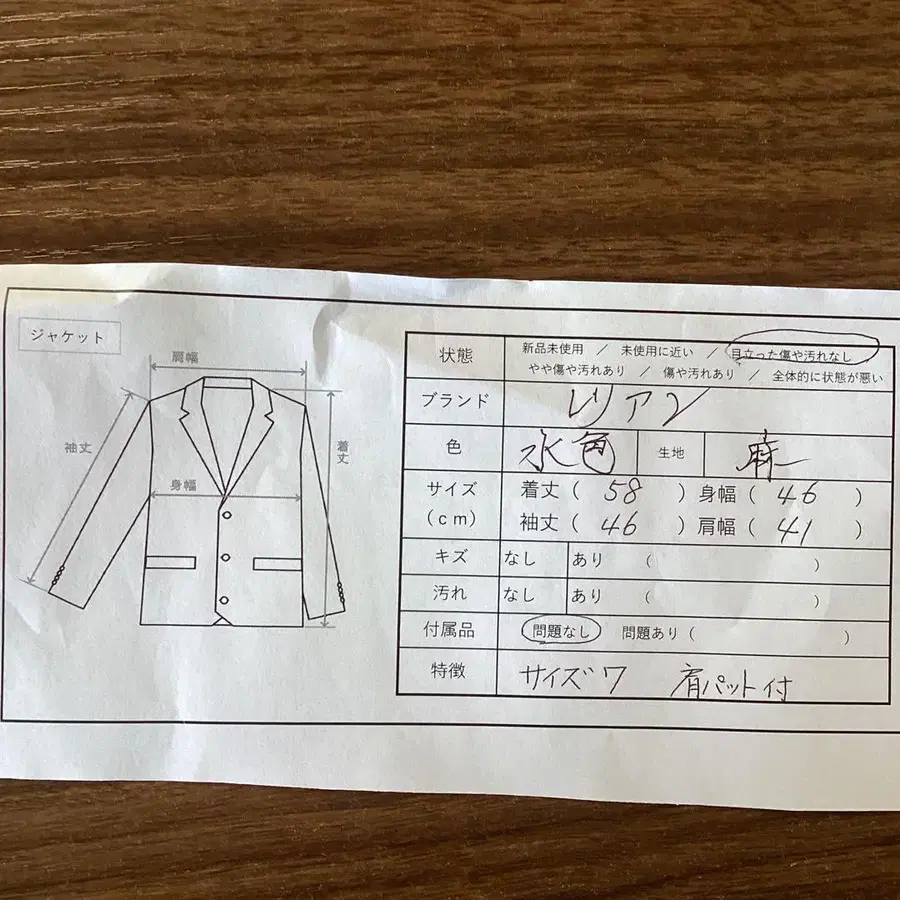 ジャケット
肩幅
袖丈
着丈
身幅
状態 新品未使用 / 未使用に近い / 目立った傷や汚れなし
やや傷や汚れあり / 傷や汚れあり / 全体的に状態が悪い
ブランド レリアン
色 水色 生地 麻
サイズ 着丈( 58 ) 身幅( 46 )
(cm) 袖丈( 46 ) 肩幅( 41 )
キズ なし あり ( )
汚れ なし あり ( )
付属品 問題なし 問題あり( )
特徴 サイズ7 肩パット付